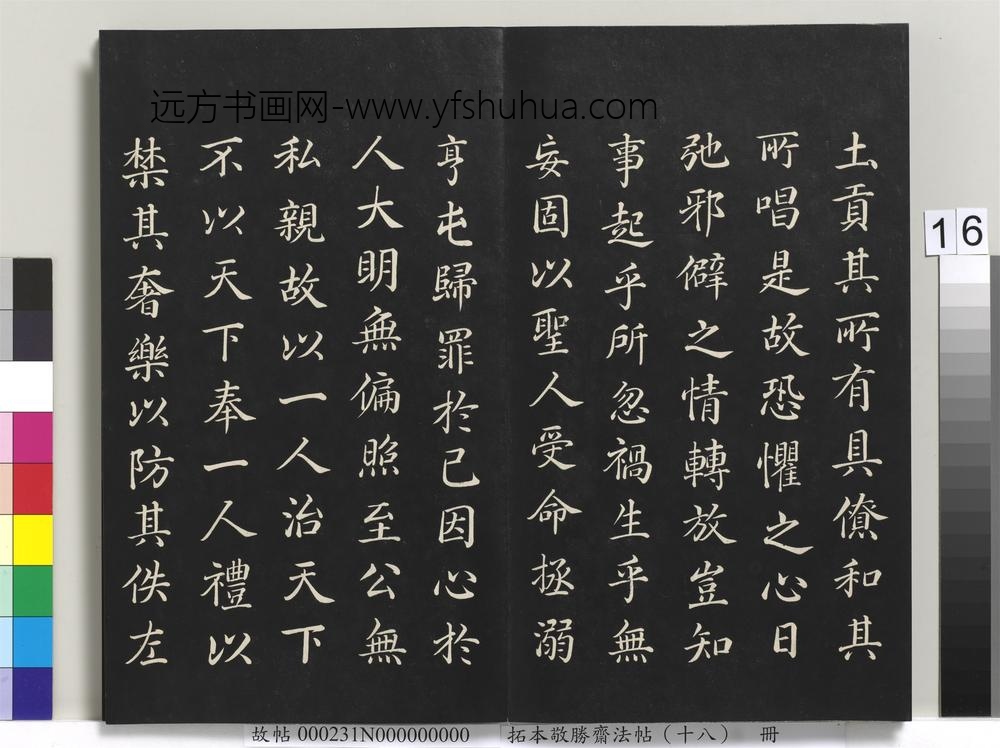 远方书画网-www.yfshuhua.com
土貢其所有具僚和其
所唱是故恐懼之心日
弛邪僻之情轉放豈知
事起乎所忽禍生乎無
妄固以聖人受命拯溺
亨屯歸罪於己因心於
人大明無偏照至公無
私親故以一人治天下
不以天下奉一人禮以
禁其奢樂以防其佚左
16
故帖 000231N000000000 拓本敬勝齋法帖（十八） 冊